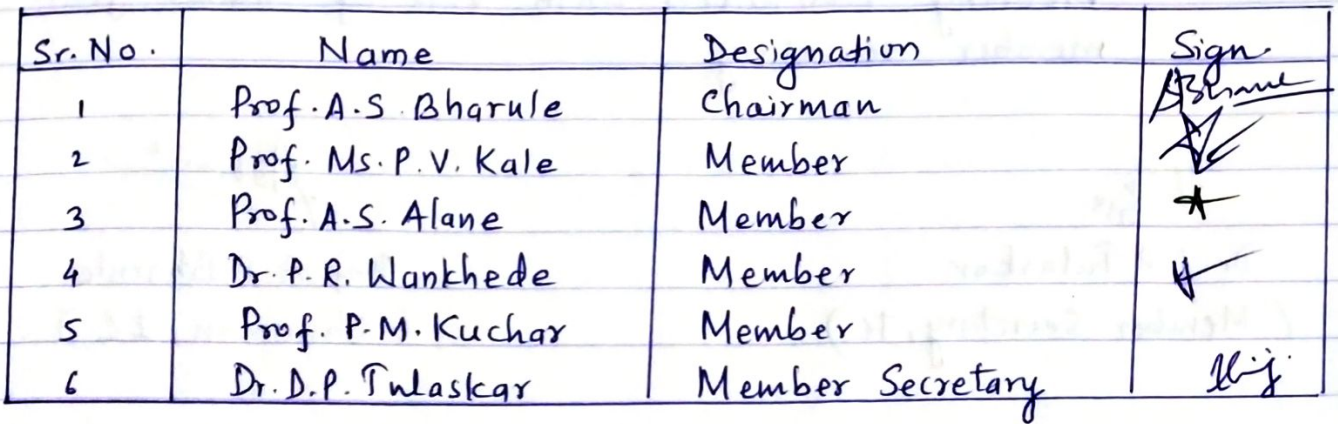 Sr. No. Name Designation Sign.
1 Prof. A.S. Bharule Chairman
2 Prof. Ms. P. V. Kale Member
3 Prof. A.S. Alane Member
4 Dr. P. R. Wankhede Member
5 Prof. P.M. Kuchar Member
6 Dr. D.P. Tulaskar Member Secretary